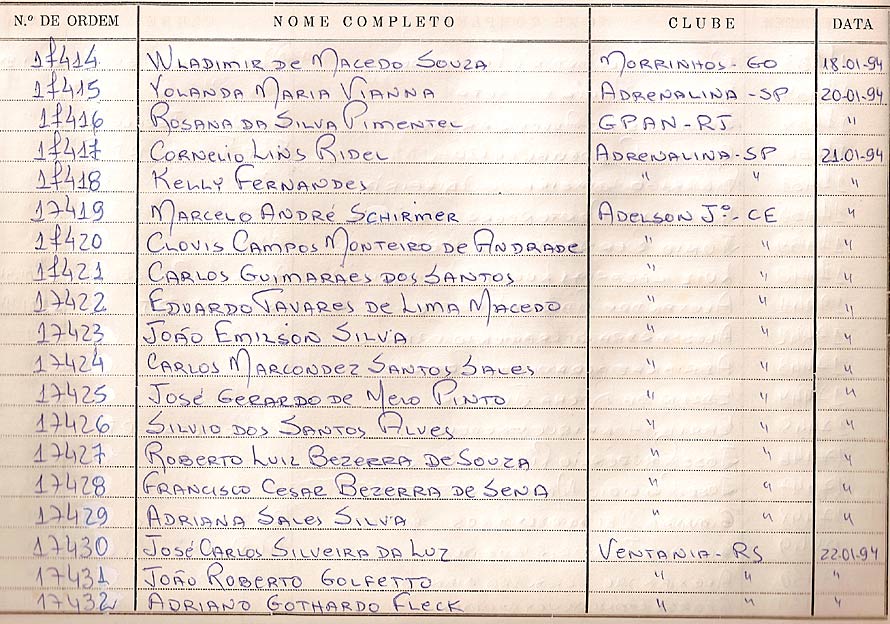 N.º DE ORDEM NOME COMPLETO CLUBE DATA
17414 WLADIMIR DE MACEDO SOUZA MORRINHOS - GO 18.01.94
17415 YOLANDA MARIA VIANNA ADRENALINA - SP 20.01.94
17416 ROSANA DA SILVA PIMENTEL GPAN - RJ "
17417 CORNELIO LINS RIDEL ADRENALINA - SP 21.01.94
17418 KELLY FERNANDES " " "
17419 MARCELO ANDRÉ SCHIRMER ADELSON Jº - CE "
17420 CLOVIS CAMPOS MONTEIRO DE ANDRADE " " "
17421 CARLOS GUIMARÃES DOS SANTOS " " "
17422 EDUARDO TAVARES DE LIMA MACEDO " " "
17423 JOÃO EMILSON SILVA " " "
17424 CARLOS MARCONDEZ SANTOS SALES " " "
17425 JOSÉ GERARDO DE MELO PINTO " " "
17426 SILVIO DOS SANTOS ALVES " " "
17427 ROBERTO LUIZ BEZERRA DE SOUZA " " "
17428 FRANCISCO CESAR BEZERRA DE SENA " " "
17429 ADRIANA SALES SILVA " " "
17430 JOSÉ CARLOS SILVEIRA DA LUZ VENTANIA - RS 22.01.94
17431 JOÃO ROBERTO GOLFETTO " " "
17432 ADRIANO GOTHARDO FLECK " " "